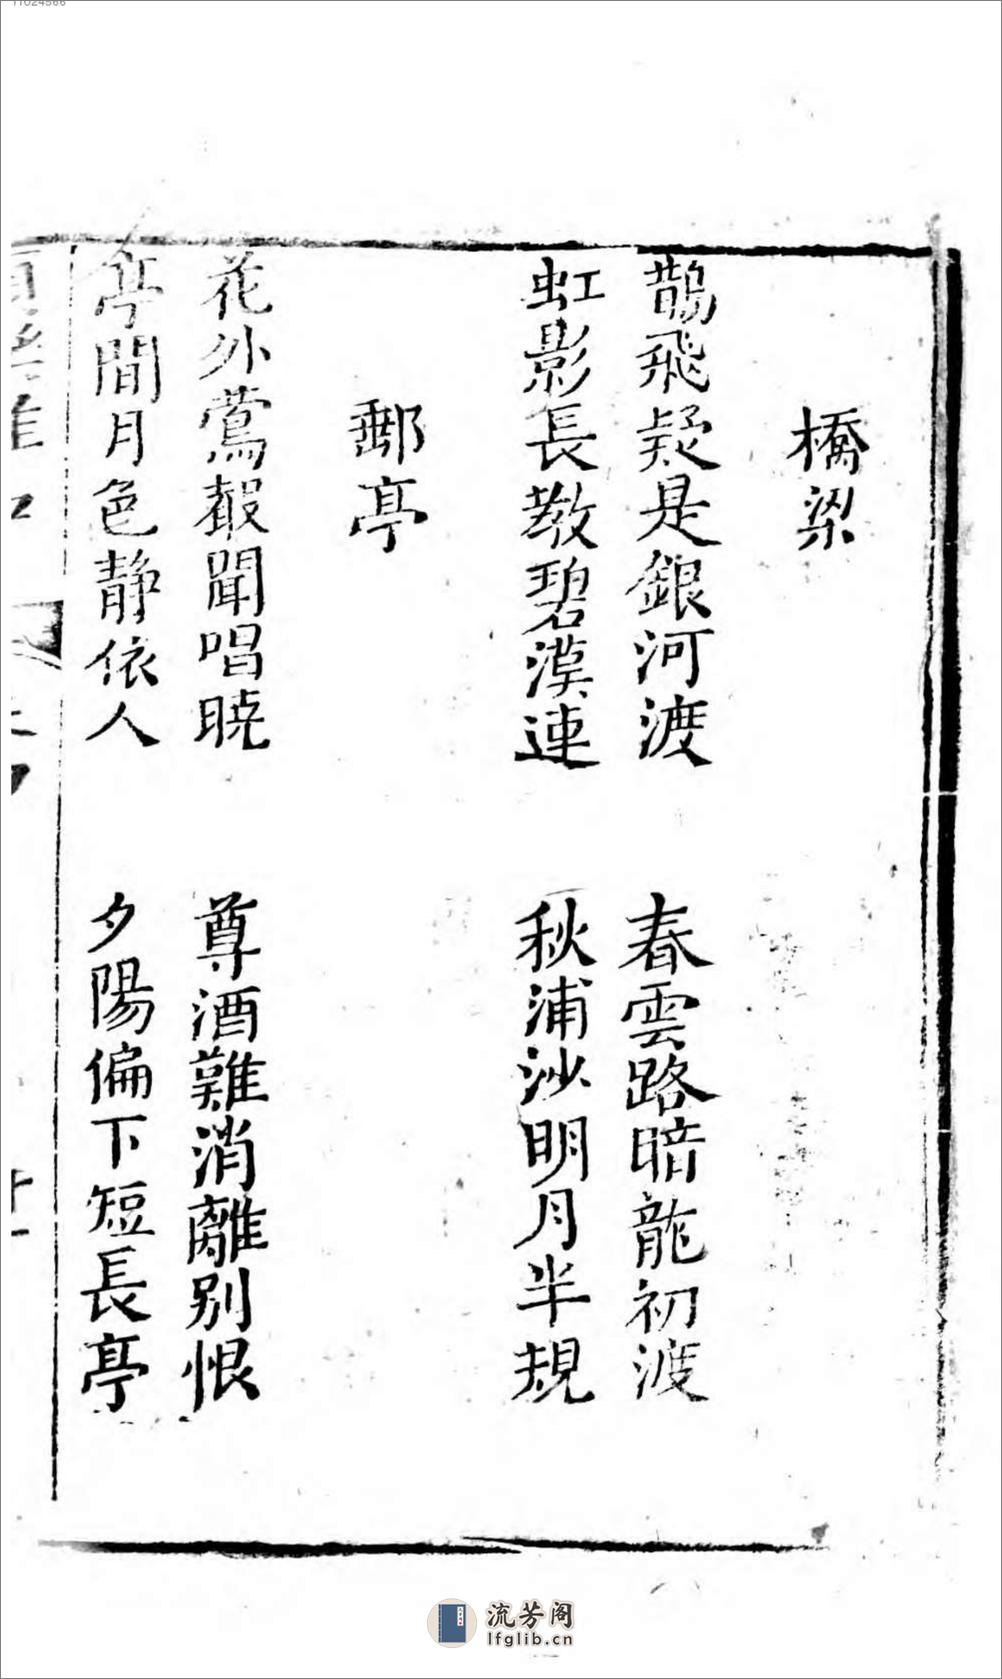 11024566
橋梁
鵲飛疑是銀河渡　春雲路暗龍初渡
虹影長教碧漢連　秋浦沙明月半規
郵亭
花外鶯聲聞唱曉　尊酒難消離別恨
亭間月色静依人　夕陽偏下短長亭
流芳阁
lfglib.cn